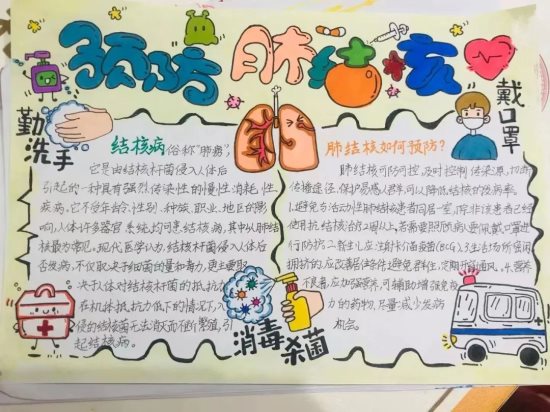 预防肺结核
勤洗手
戴口罩
结核病俗称"肺痨"?
它是由结核杆菌侵入人体后
引起的一种具有强烈传染性的慢性消耗性
疾病。它不受年龄、性别、种族、职业、地区的影
响,人体许多器官、系统均可患结核病,其中以肺结
核最为常见。现代医学认为,结核杆菌侵入人体后
否发病,不仅取决于细菌的量和毒力,更主要取
决于人体对结核杆菌的抵抗力
在机体抵抗力低下的情况下,入
侵的结核菌无法消灭而不断繁殖,引
起结核病。
肺结核如何预防?
肺结核可防可控,及时控制传染源、切断
传播途径、保护易感人群,可以降低结核的发病率。
1.避免与活动性肺结核患者同居一室,
使用抗结核治疗2周以上,若需要照顾病人要佩戴口罩进
行防护。2.新生儿应注射卡介苗疫苗(BCG)。3.生活场所很闭
拥挤的,应改善居住条件,避免群住,定期开窗通风。4.营养
不良者,应加强营养,可辅助增强免疫
力的药物,尽量减少发病
机会。
消毒杀菌